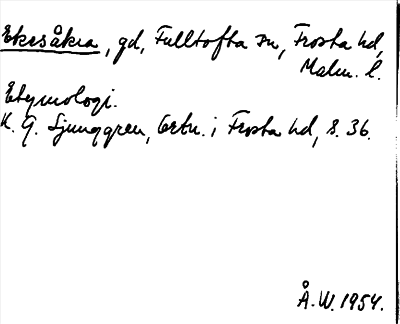 Ekesåkra, gd, Fulltofta sn, Frosta hd,
Malm. l.
Etymologi.
K. G. Ljunggren, Ortn. i Frosta hd, s. 36.
Å. W. 1954.